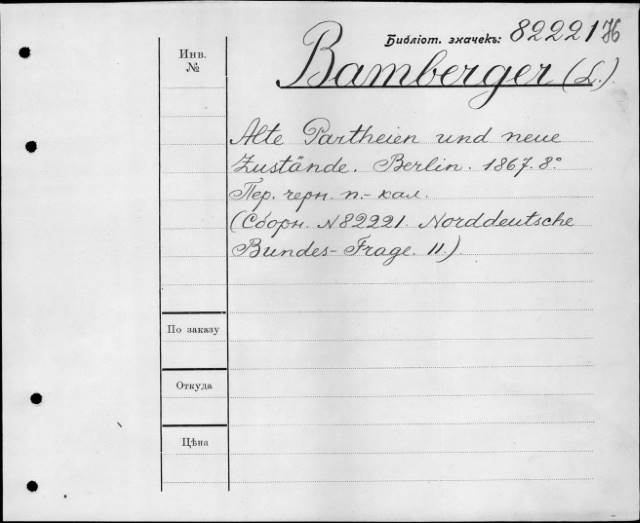 Библіот. значекъ: 82221
Инв.
№
Bamberger (L.).
Alte Partheien und neue
Zustände. Berlin. 1867. 8°
Пер. черн. п.- кал.
(Сборн. №82221. Norddeutsche
Bundes-Frage. 11.)
По заказу
Откуда
Цѣна